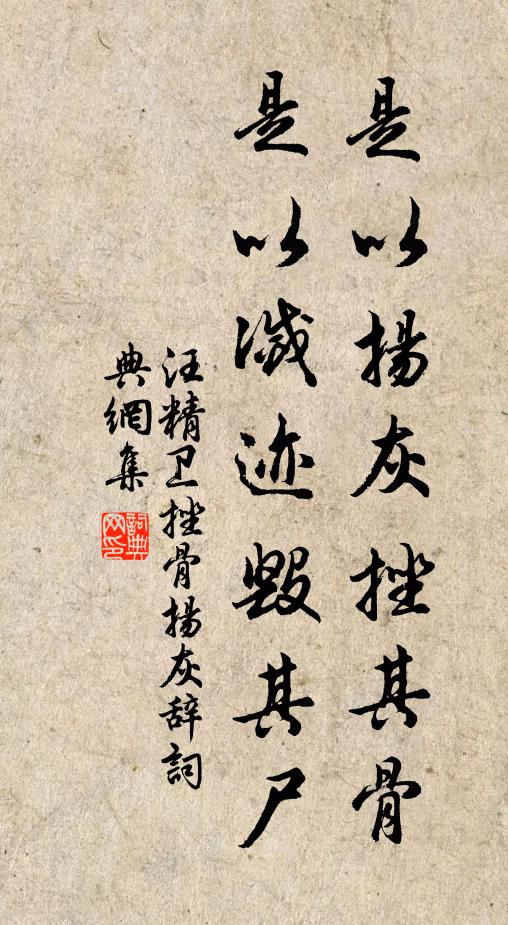 是以揚灰挫其骨
是以滅迹毀其尸
汪精卫挫骨揚灰辞詞
典網集
詞典網印